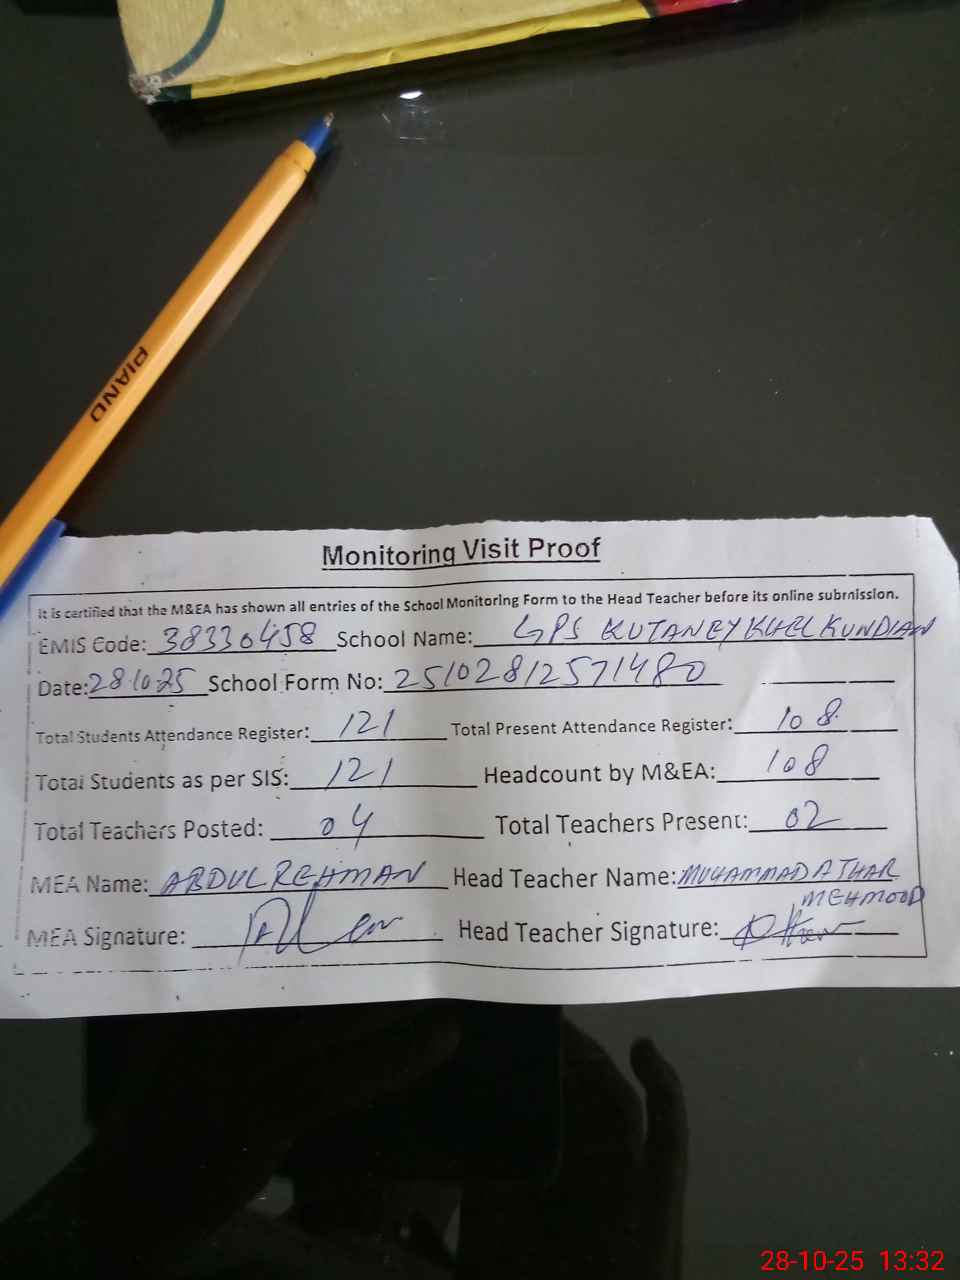 PIANO
Monitoring Visit Proof
It is certified that the M&EA has shown all entries of the School Monitoring Form to the Head Teacher before its online submission.
EMIS Code: 38330458 School Name: GPS KUTANEY KHEL KUNDIAN
Date: 28.10.25 School Form No: 25102812571480
Total Students Attendance Register: 121 Total Present Attendance Register: 108
Total Students as per SIS: 121 Headcount by M&EA: 108
Total Teachers Posted: 04 Total Teachers Present: 02
MEA Name: ABDUL REHMAN Head Teacher Name: MUHAMMAD ATHAR
MEHMOOD
MEA Signature: Head Teacher Signature:
28-10-25 13:32